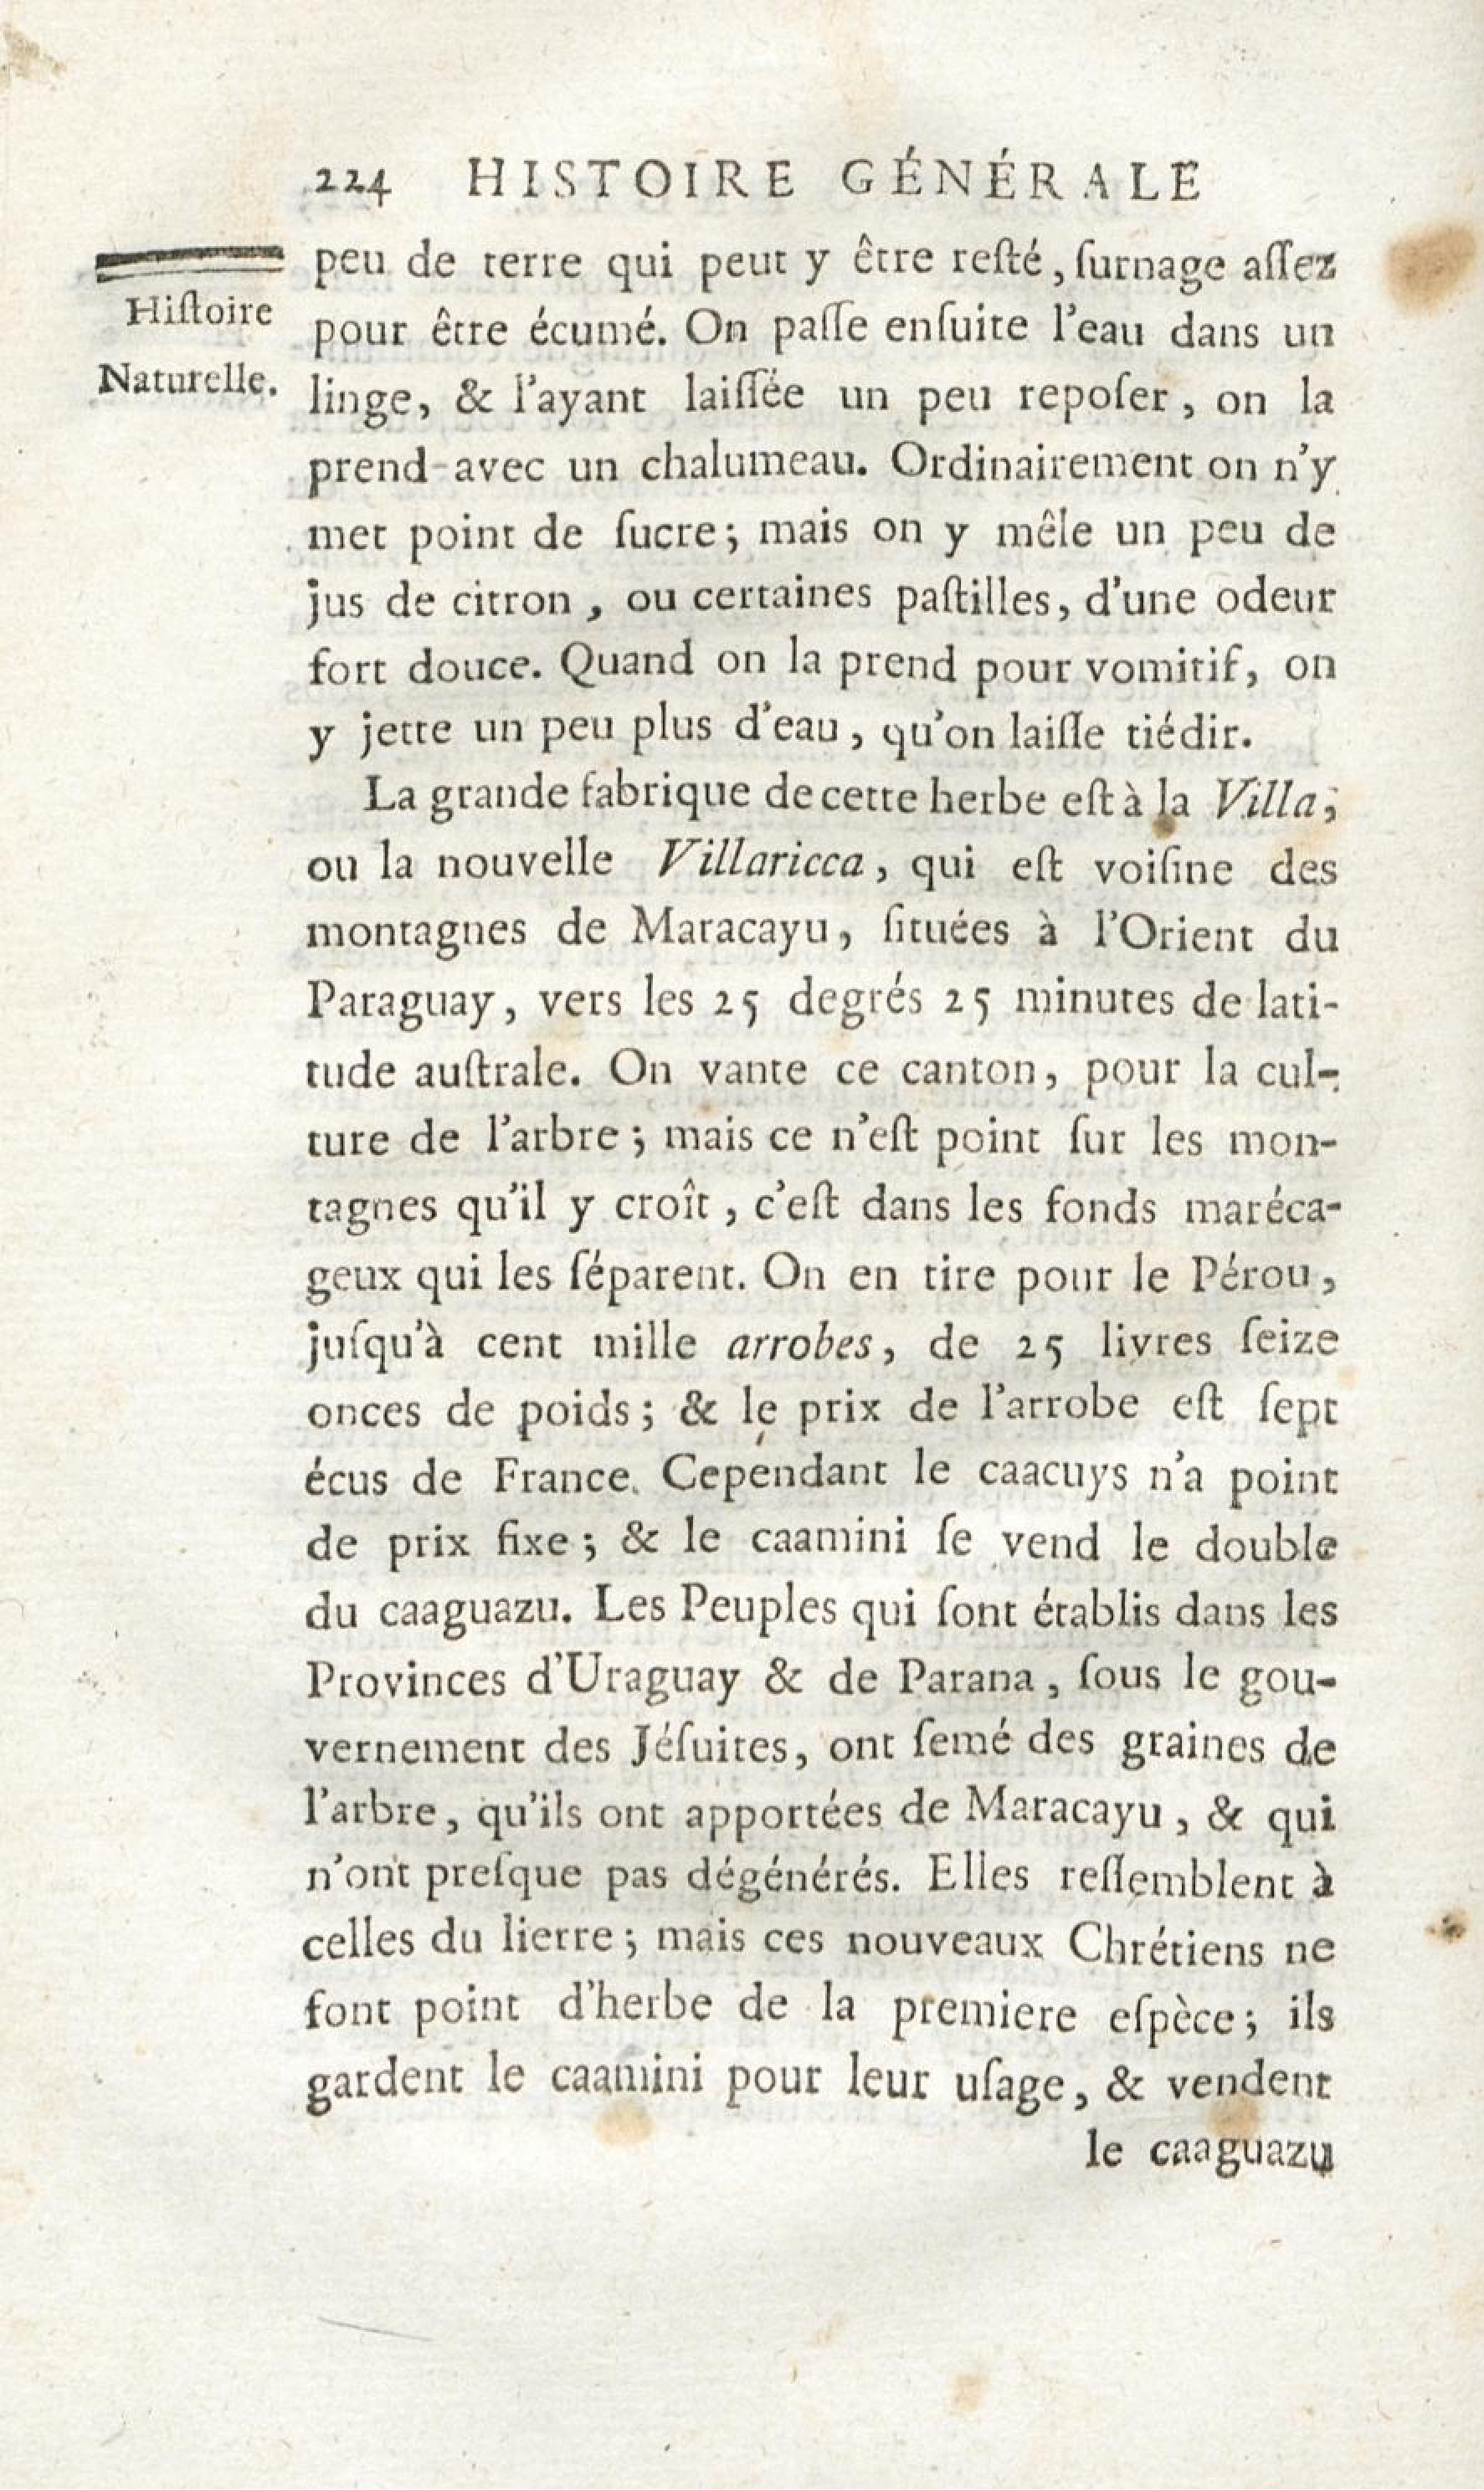 224 HISTOIRE GÉNÉRALE
Hiſtoire
Naturelle.
peu de terre qui peut y être reſté, ſurnage aſſez
pour être écumé. On paſſe enſuite l'eau dans un
linge, & l'ayant laiſſée un peu repoſer, on la
prend avec un chalumeau. Ordinairement on n'y
met point de ſucre; mais on y mêle un peu de
jus de citron, ou certaines paſtilles, d'une odeur
fort douce. Quand on la prend pour vomitif, on
y jette un peu plus d'eau, qu'on laiſſe tiédir.
La grande fabrique de cette herbe eſt à la Villa,
ou la nouvelle Villaricca, qui eſt voiſine des
montagnes de Maracayu, ſituées à l'Orient du
Paraguay, vers les 25 degrés 25 minutes de lati-
tude auſtrale. On vante ce canton, pour la cul-
ture de l'arbre; mais ce n'eſt point ſur les mon-
tagnes qu'il y croît, c'eſt dans les fonds maréca-
geux qui les ſéparent. On en tire pour le Pérou,
juſqu'à cent mille arrobes, de 25 livres ſeize
onces de poids; & le prix de l'arrobe eſt ſept
écus de France. Cependant le caacuys n'a point
de prix fixe; & le caamini ſe vend le double
du caaguazu. Les Peuples qui ſont établis dans les
Provinces d'Uraguay & de Parana, ſous le gou-
vernement des Jéſuites, ont ſemé des graines de
l'arbre, qu'ils ont apportées de Maracayu, & qui
n'ont preſque pas dégénérés. Elles reſſemblent à
celles du lierre; mais ces nouveaux Chrétiens ne
font point d'herbe de la premiere eſpèce; ils
gardent le caamini pour leur uſage, & vendent
le caaguazu